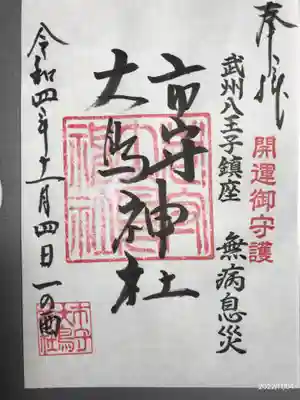 奉拝
開運御守護
武州八王子鎮座 無病息災
市守神社
大鳥神社
令和四年十一月四日 一の酉
2022/11/04